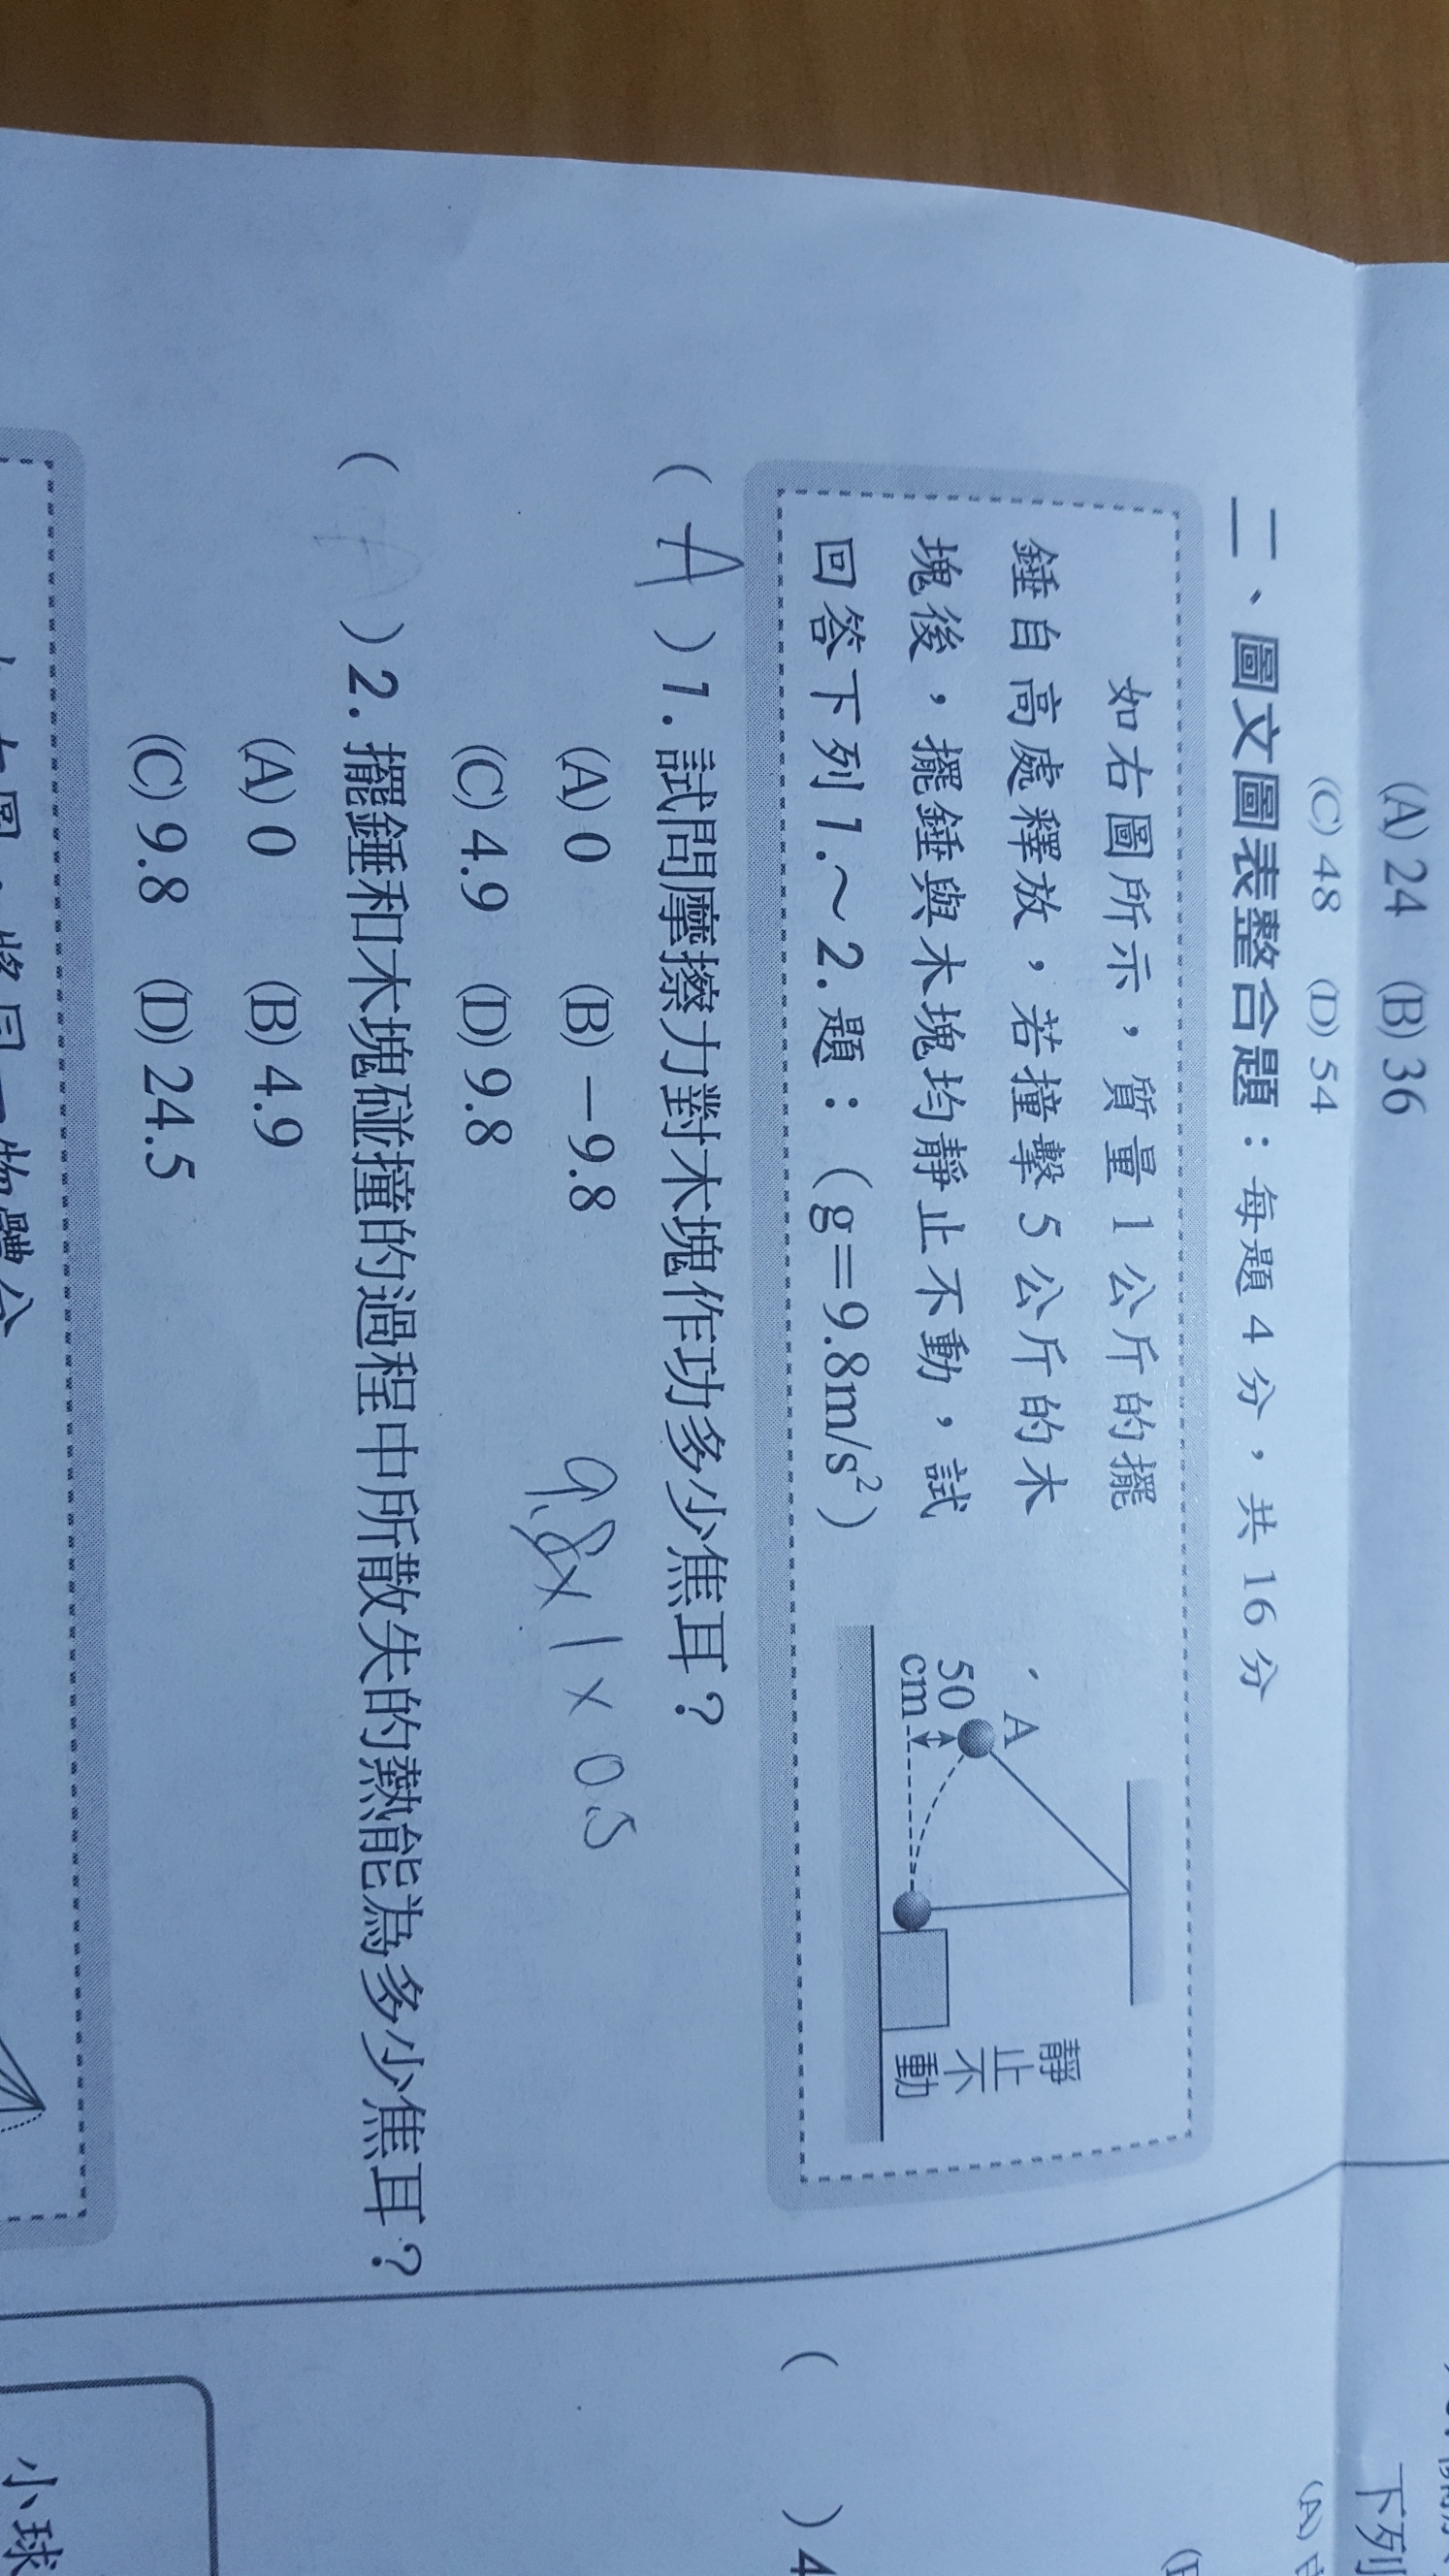 (A) 24 (B) 36
(C) 48 (D) 54
二、圖文圖表整合題：每題 4 分，共 16 分
如右圖所示，質量 1 公斤的擺
錘自高處釋放，若撞擊 5 公斤的木
塊後，擺錘與木塊均靜止不動，試
回答下列 1.～2. 題：（g＝9.8m/s²）
A
50
cm
靜止不動
( A ) 1. 試問摩擦力對木塊作功多少焦耳？
(A) 0 (B) －9.8
(C) 4.9 (D) 9.8
9.8 × 1 × 0.5
( A ) 2. 擺錘和木塊碰撞的過程中所散失的熱能為多少焦耳？
(A) 0 (B) 4.9
(C) 9.8 (D) 24.5
下列
(A)
( ) 4
小球